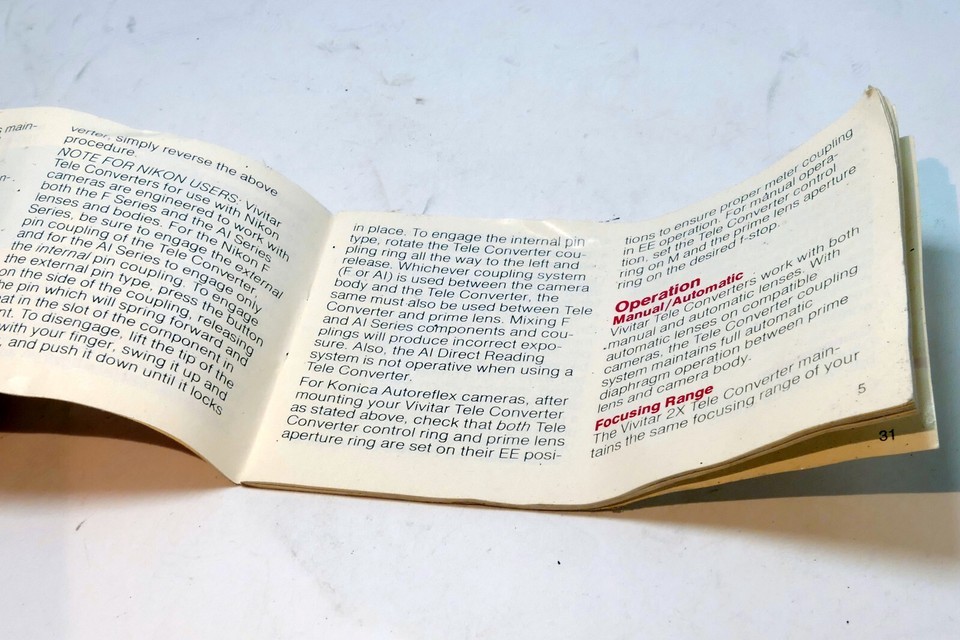 s main-
n-
verter, simply reverse the above
procedure.
NOTE FOR NIKON USERS: Vivitar
Tele Converters for use with Nikon
cameras are engineered to work with
both the F Series and the AI Series
lenses and bodies. For the Nikon F
Series, be sure to engage the external
pin coupling of the Tele Converter,
and for the AI Series to engage only
the internal pin coupling. To engage
the external pin type, press the button
on the side of the coupling, releasing
the pin which will spring forward and
at in the slot of the component in
nt. To disengage, lift the tip of the
with your finger, swing it up and
, and push it down until it locks
in place. To engage the internal pin
type, rotate the Tele Converter cou-
pling ring all the way to the left and
release. Whichever coupling system
(F or AI) is used between the camera
body and the Tele Converter, the
same must also be used between Tele
Converter and prime lens. Mixing F
and AI Series components and cou-
plings will produce incorrect expo-
sure. Also, the AI Direct Reading
system is not operative when using a
Tele Converter.
For Konica Autoreflex cameras, after
mounting your Vivitar Tele Converter
as stated above, check that both Tele
Converter control ring and prime lens
aperture ring are set on their EE posi-
tions to ensure proper meter coupling
in EE operation. For manual opera-
tion, set the Tele Converter control
ring on M and the prime lens aperture
ring on the desired f-stop.
Operation
Manual/Automatic
Vivitar Tele Converters work with both
manual and automatic lenses. With
automatic lenses on compatible
cameras, the Tele Converter coupling
system maintains full automatic
diaphragm operation between prime
lens and camera body.
Focusing Range
The Vivitar 2X Tele Converter main-
tains the same focusing range of your
5
31